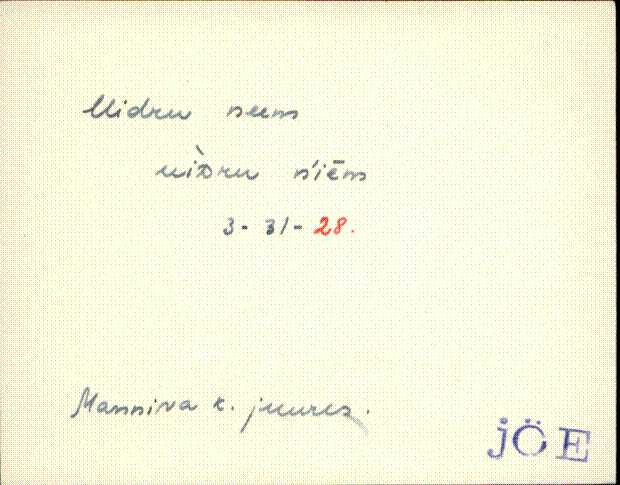 Uidru neem
uìᴅru ńiēm
3- 31- 28.
Manniva k. juures.
JÖE